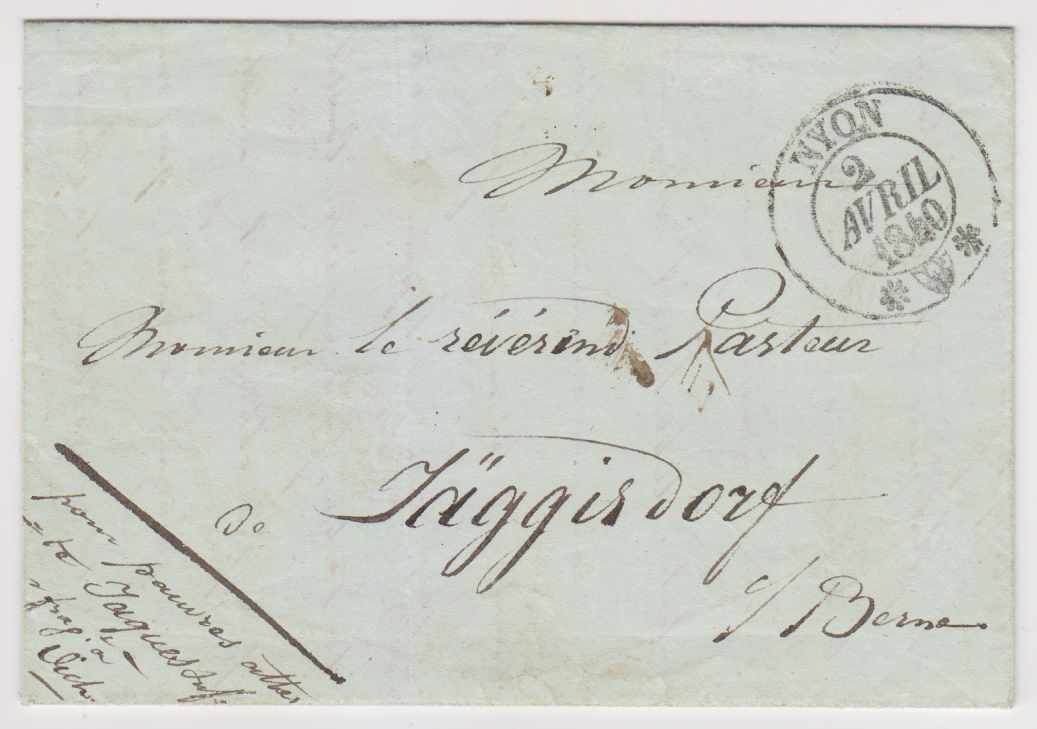 NYON
2
AVRIL
1840
Monsieur
Monsieur le révérend Pasteur
de Jäggisdorf
s/ Berne
pour pauvres
Jaques
à